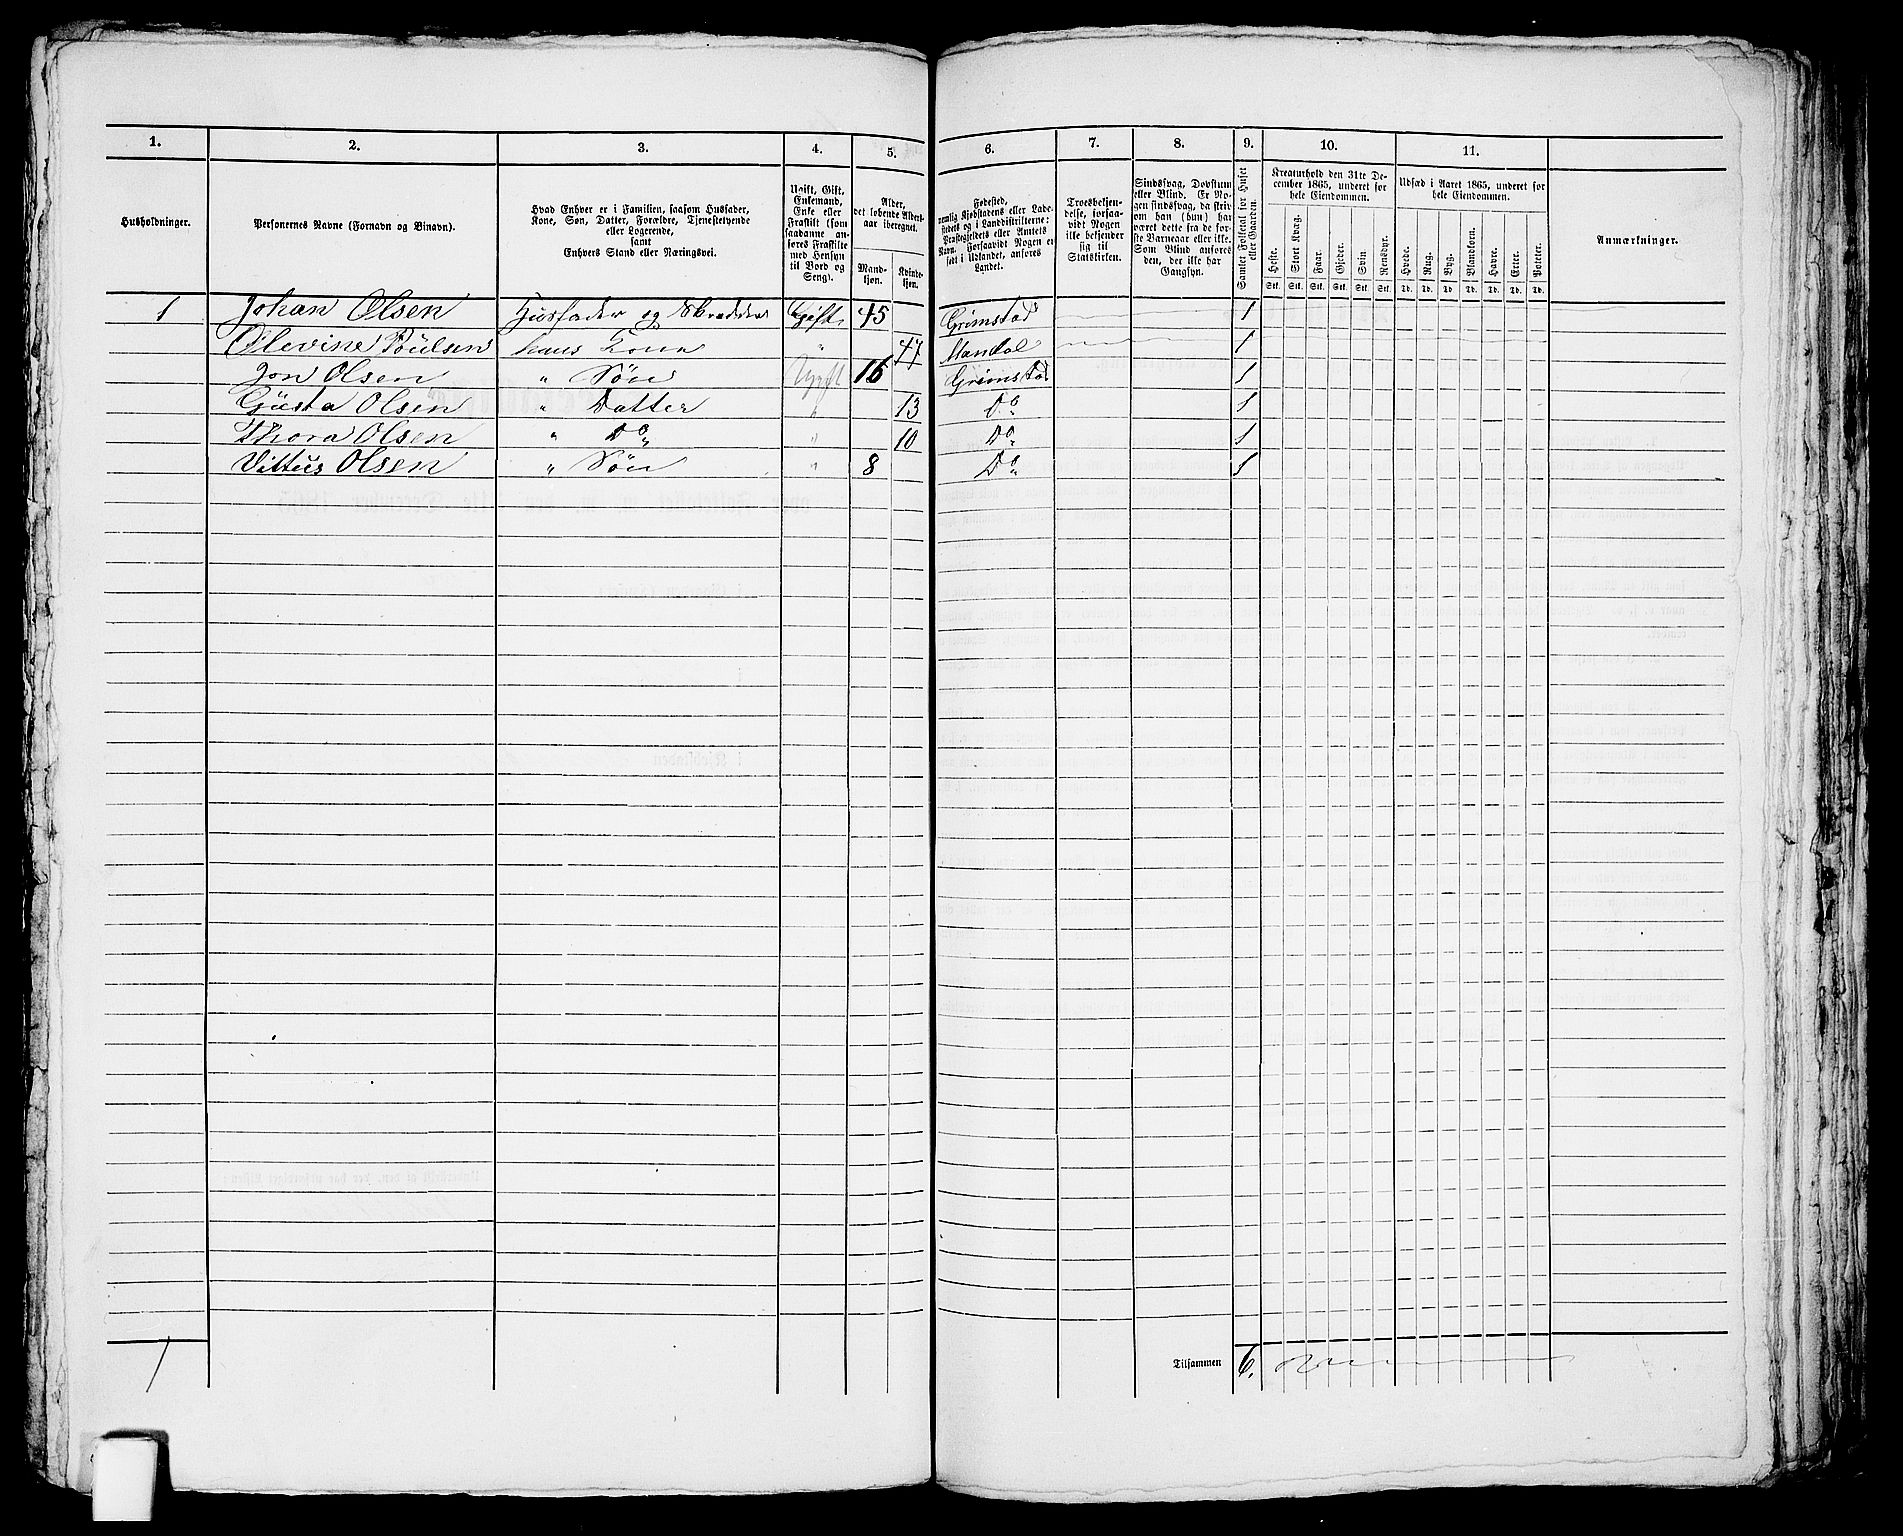 1. 2. 3. 4. 5. 6. 7. 8. 9. 10. 11.
Husholdninger.
Personernes Navne (Fornavn og Binavn).
Hvad Enhver er i Familien, saasom Husfader,
Kone, Søn, Datter, Forældre, Tjenestetyende
eller Logerende,
samt
Enhvers Stand eller Næringsvei.
Ugift, Gift,
Enkemand,
Enke eller
Fraskilt (som
saadanne an-
føres Fraskilte
med Hensyn
til Bord og
Seng).
Alder,
det løbende Alders-
aar iberegnet.
Mand-
kjøn.
Kvinde-
kjøn.
Fødested,
nemlig Kjøbstadens eller Lade-
stedets og i Landdistrikterne:
Præstegjeldets eller Amtets
Navn. Forsaavidt Nogen er
født i Udlandet, anføres
Landet.
Troesbekjen-
delse, forsaa-
vidt Nogen
ikke bekjender
sig til
Statskirken.
Sindssvag, Døvstum
eller Blind. Er No-
gen sindssvag, da skriv
om han (hun) har
været dette fra de før-
ste Barneaar eller ikke.
Som Blind anføres
den, der ikke har
Gangsyn.
Samlet Folketal for Huset
eller Gaarden.
Kreaturhold den 31te De-
cember 1865, underet for
hele Eiendommen.
Heste. Stort Kvæg. Faar. Gjeder. Svin Rensdyr.
Stk. Stk. Stk. Stk. Stk. Stk.
Udsæd i Aaret 1865, underet for
hele Eiendommen.
Hvede. Rug. Byg. Blandkorn. Havre. Erter. Poteter.
Td. Td. Td. Td. Td. Td. Td.
Anmærkninger.
1 Johan Olsen Husfader og Skrædder Gift 45 Grimstad 1
Olevine Poulsen hans Kone " 47 Mandal 1
Jon Olsen " Søn Ugift 16 Grimstad 1
Gusta Olsen " Datter " 13 Do 1
Thora Olsen " Do " 10 Do 1
Vittus Olsen " Søn " 8 Do 1
1 Tilsammen 6.